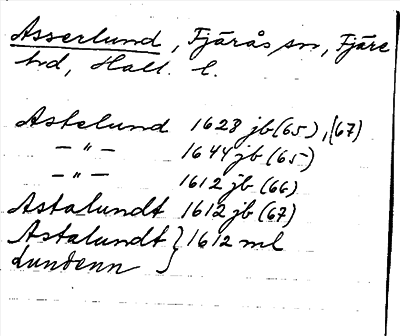 Asserlund, Fjärås sn, Fjäre
hd, Hall. l.
Astelund 1628 jb (65), (67)
— " — 1644 jb (65)
— " — 1612 jb (66)
Astalundt 1612 jb (67)
Astalundt } 1612 ml
Lundenn